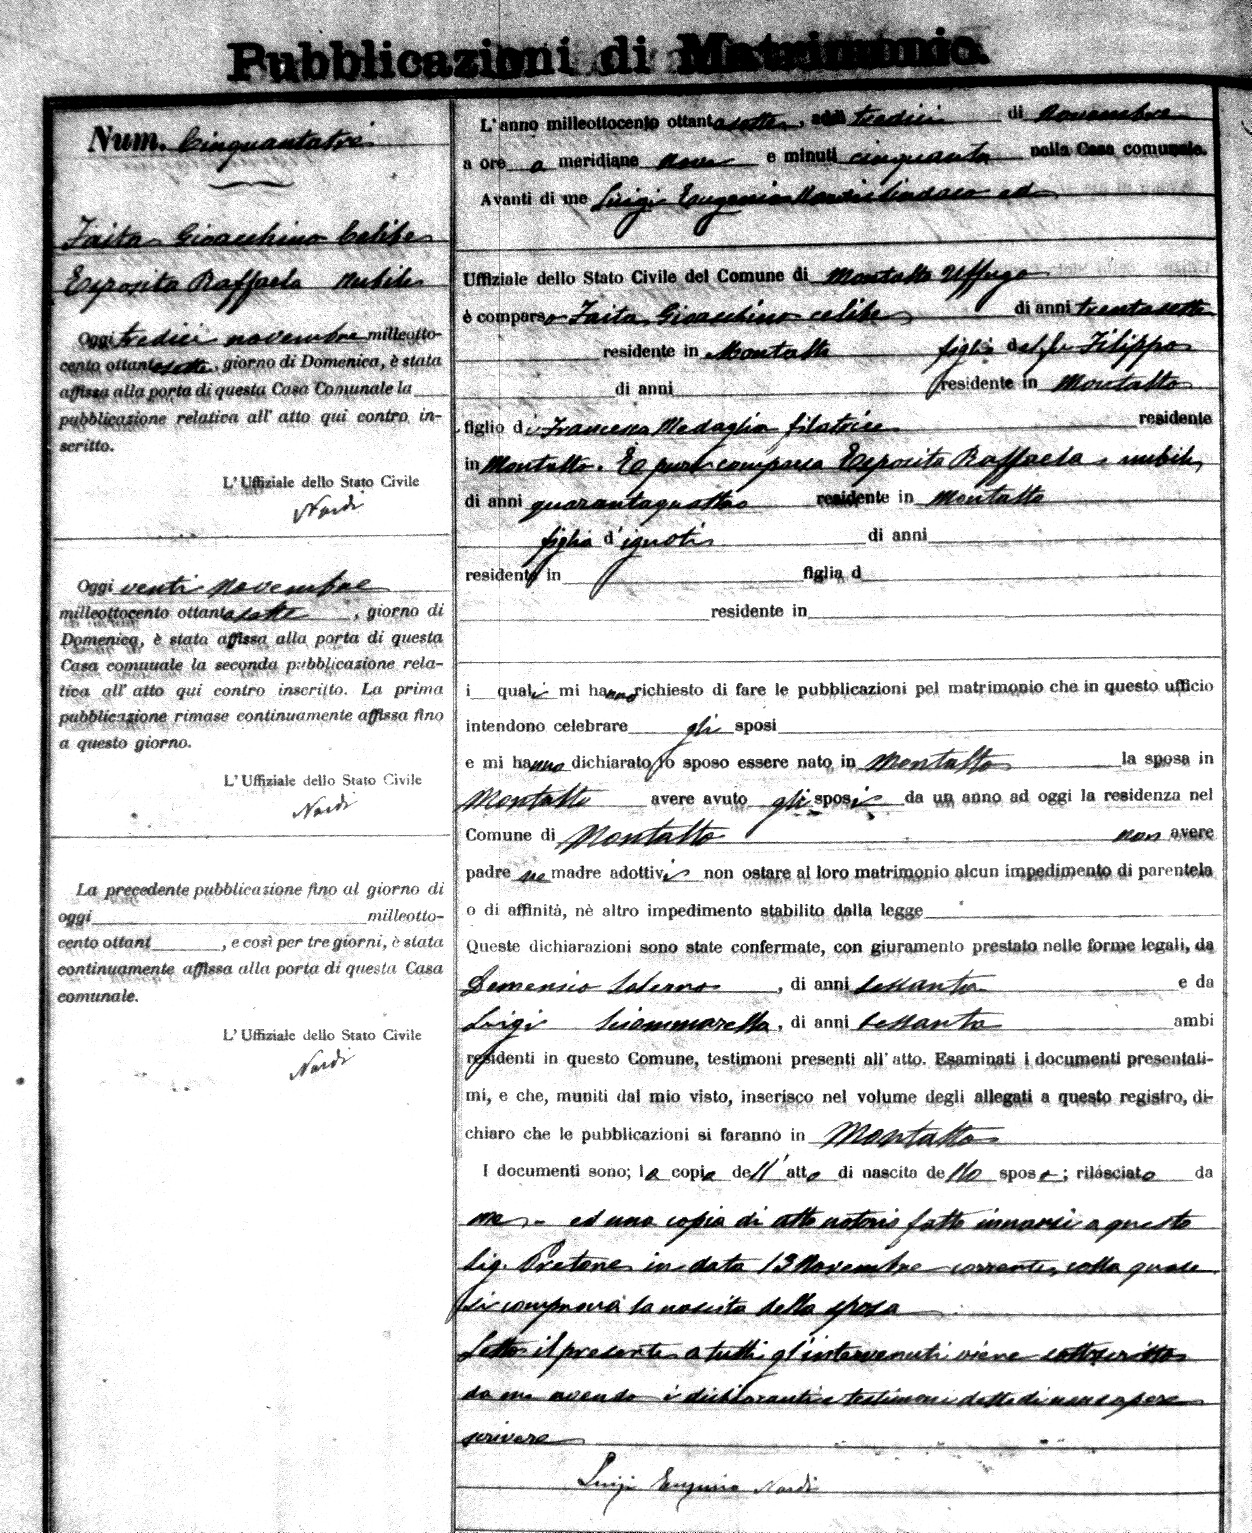 Pubblicazioni di Matrimonio.
Num. Cinquantatre
Faita Gioacchino Celibe
Esposito Raffaela Nubile
Oggi tredici novembre milleotto-
cento ottantasette, giorno di Domenica, è stata
affissa alla porta di questa Casa Comunale la
pubblicazione relativa all' atto qui contro in-
scritto.
L' Uffiziale dello Stato Civile
Nardi
Oggi venti novembre
milleottocento ottantasette, giorno di
Domenica, è stata affissa alla porta di questa
Casa comunale la seconda pubblicazione rela-
tiva all' atto qui contro inscritto. La prima
pubblicazione rimase continuamente affissa fino
a questo giorno.
L' Uffiziale dello Stato Civile
Nardi
La precedente pubblicazione fino al giorno di
oggi milleotto-
cento ottant , e così per tre giorni, è stata
continuamente affissa alla porta di questa Casa
comunale.
L' Uffiziale dello Stato Civile
Nardi
L'anno milleottocento ottantasette, addì tredici di Novembre
a ore a meridiane nove e minuti cinquanta nella Casa comunale.
Avanti di me Luigi Eugenio Nardi Sindaco ed
Uffiziale dello Stato Civile del Comune di Montalto Uffugo
è comparso Faita Gioacchino celibe di anni trentasette
residente in Montalto figlio del fu Filippo
di anni residente in Montalto
figlio di Francesca Medaglia filatrice residente
in Montalto. E pure comparsa Esposito Raffaela nubile
di anni quarantaquattro residente in Montalto
figlia d'ignoti di anni
residente in figlia d
residente in
i quali mi hanno richiesto di fare le pubblicazioni pel matrimonio che in questo ufficio
intendono celebrare gli sposi
e mi hanno dichiarato lo sposo essere nato in Montalto la sposa in
Montalto avere avuto gli sposi da un anno ad oggi la residenza nel
Comune di Montalto non avere
padre ne madre adottivi non ostare al loro matrimonio alcun impedimento di parentela
o di affinità, nè altro impedimento stabilito dalla legge
Queste dichiarazioni sono state confermate, con giuramento prestato nelle forme legali, da
Demensio Salerno , di anni sessanta e da
Luigi Sciammarella, di anni sessanta ambi
residenti in questo Comune, testimoni presenti all' atto. Esaminati i documenti presentati-
mi, e che, muniti dal mio visto, inserisco nel volume degli allegati a questo registro, di-
chiaro che le pubblicazioni si faranno in Montalto
I documenti sono; la copia dell'atto di nascita dello sposo; rilasciato da
me. ed una copia di atto notorio fatto innanzi a questo
Sig. Pretore in data 13 Novembre corrente, colla quale
si comprova la nascita della sposa
Letto il presente a tutti gl'intervenuti viene sottoscritto
da me avendo i dichiaranti e testimoni detto di non sapere
scrivere
Luigi Eugenio Nardi